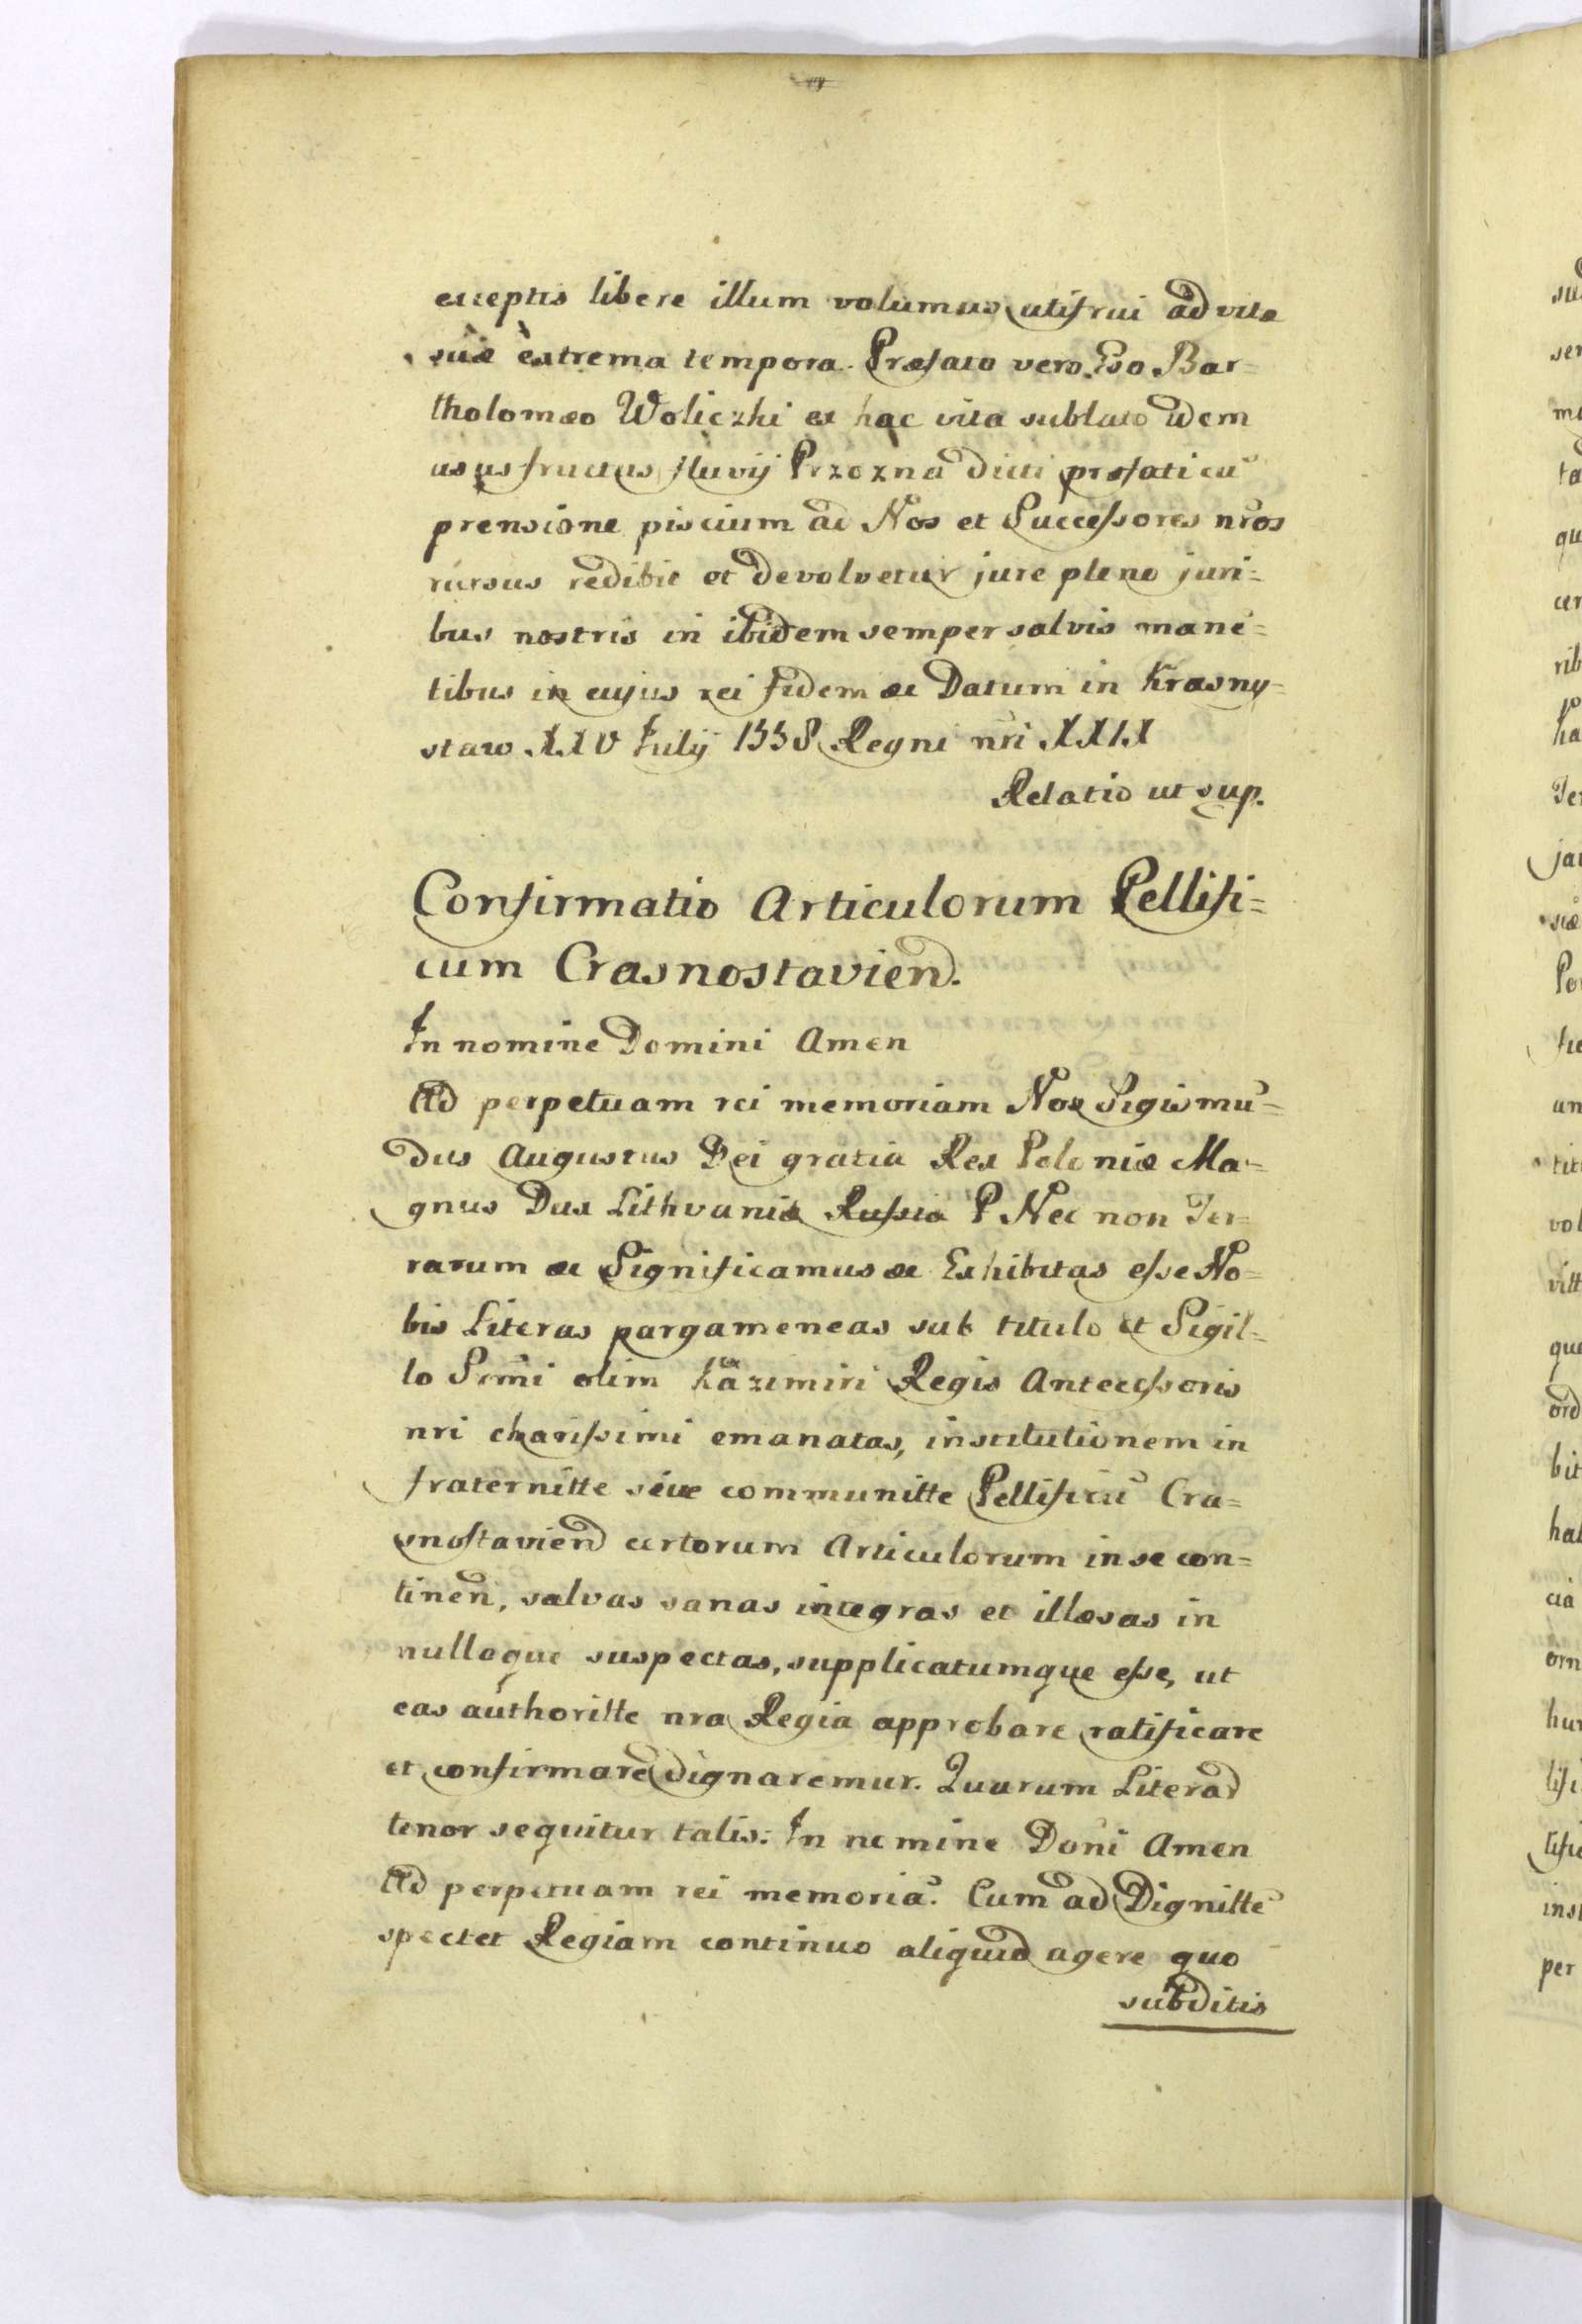 exceptis libere illum volumus utifrui ad vitæ
suæ extrema tempora. Præfato vero Bar=
tholomæo Woliczki ex hac vita sublato idem
ususfructus fluvij Przozna dicti præfati cū
prensione piscium ad Nos et Successores nr̃os
rursus redibit et devolvetur jure pleno juri=
bus nostris in ibidem semper salvis manē=
tibus in cujus rei fidem &c Datum in Krasny=
staw XXV Julij 1558 Regni nr̃i XXIX
Relatio ut sup.
Confirmatio Articulorum Pellifi=
cum Crasnostavien̄.
In nomine Domini Amen
Ad perpetuam rei memoriam Nos Sigismū=
dus Augustus Dei gratia Rex Poloniæ Ma=
gnus Dux Lithvaniæ Russiæ P Nec non Ter=
rarum &c Significamus &c Exhibitas esse No=
bis Literas pargameneas sub titulo et Sigil=
lo Srm̃i olim Kazimiri Regis Antecessoris
nri charissimi emanatas, institutionem in
fraternitte seue communitte Pellificū Cra=
snostavien̄ certorum Articulorum in se con=
tinen̄, salvas sanas integras et illæsas in
nulloque suspectas, supplicatumque esse, ut
eas authoritte nra Regia approbare ratificare
et confirmare dignaremur. Quarum Literar̄
tenor sequitur talis: In nomine Dōni Amen
Ad perpetuam rei memoriā. Cum ad Dignittē
spectet Regiam continuo aliquid agere quo
subditis